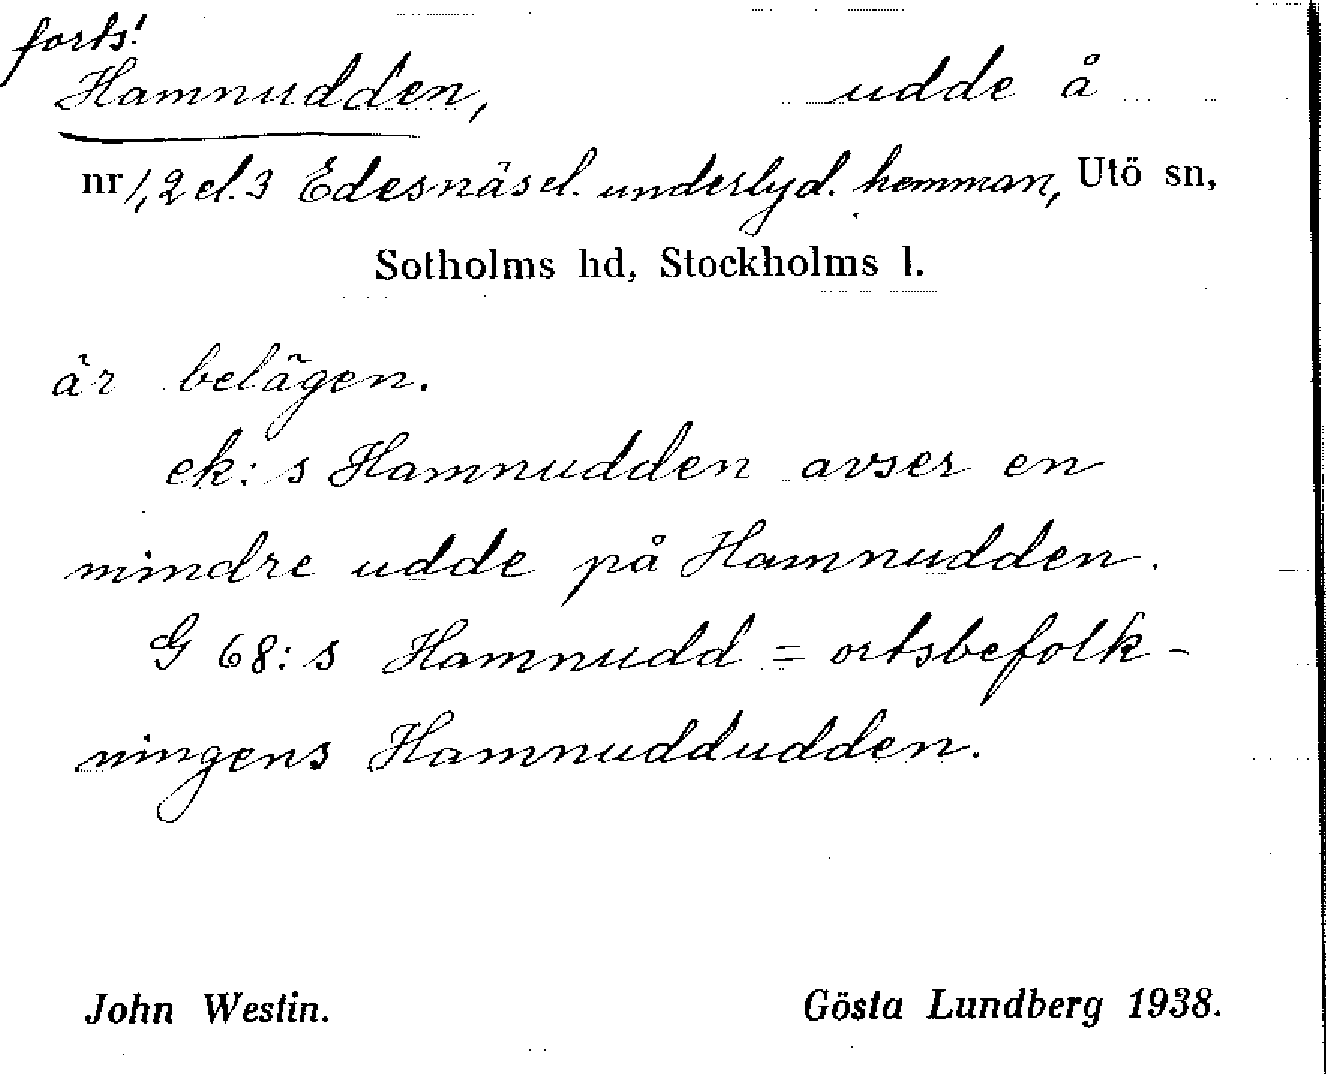 forts!
Hamnudden, udde å
nr 1, 2 el. 3 Edesnäs el. underlyd. hemman, Utö sn,
Sotholms hd, Stockholms l.
är belägen.
ek:s Hamnudden avser en
mindre udde på Hamnudden.
G 68:s Hamnudd = ortsbefolk-
ningens Hamnuddudden.
John Westin. Gösta Lundberg 1938.